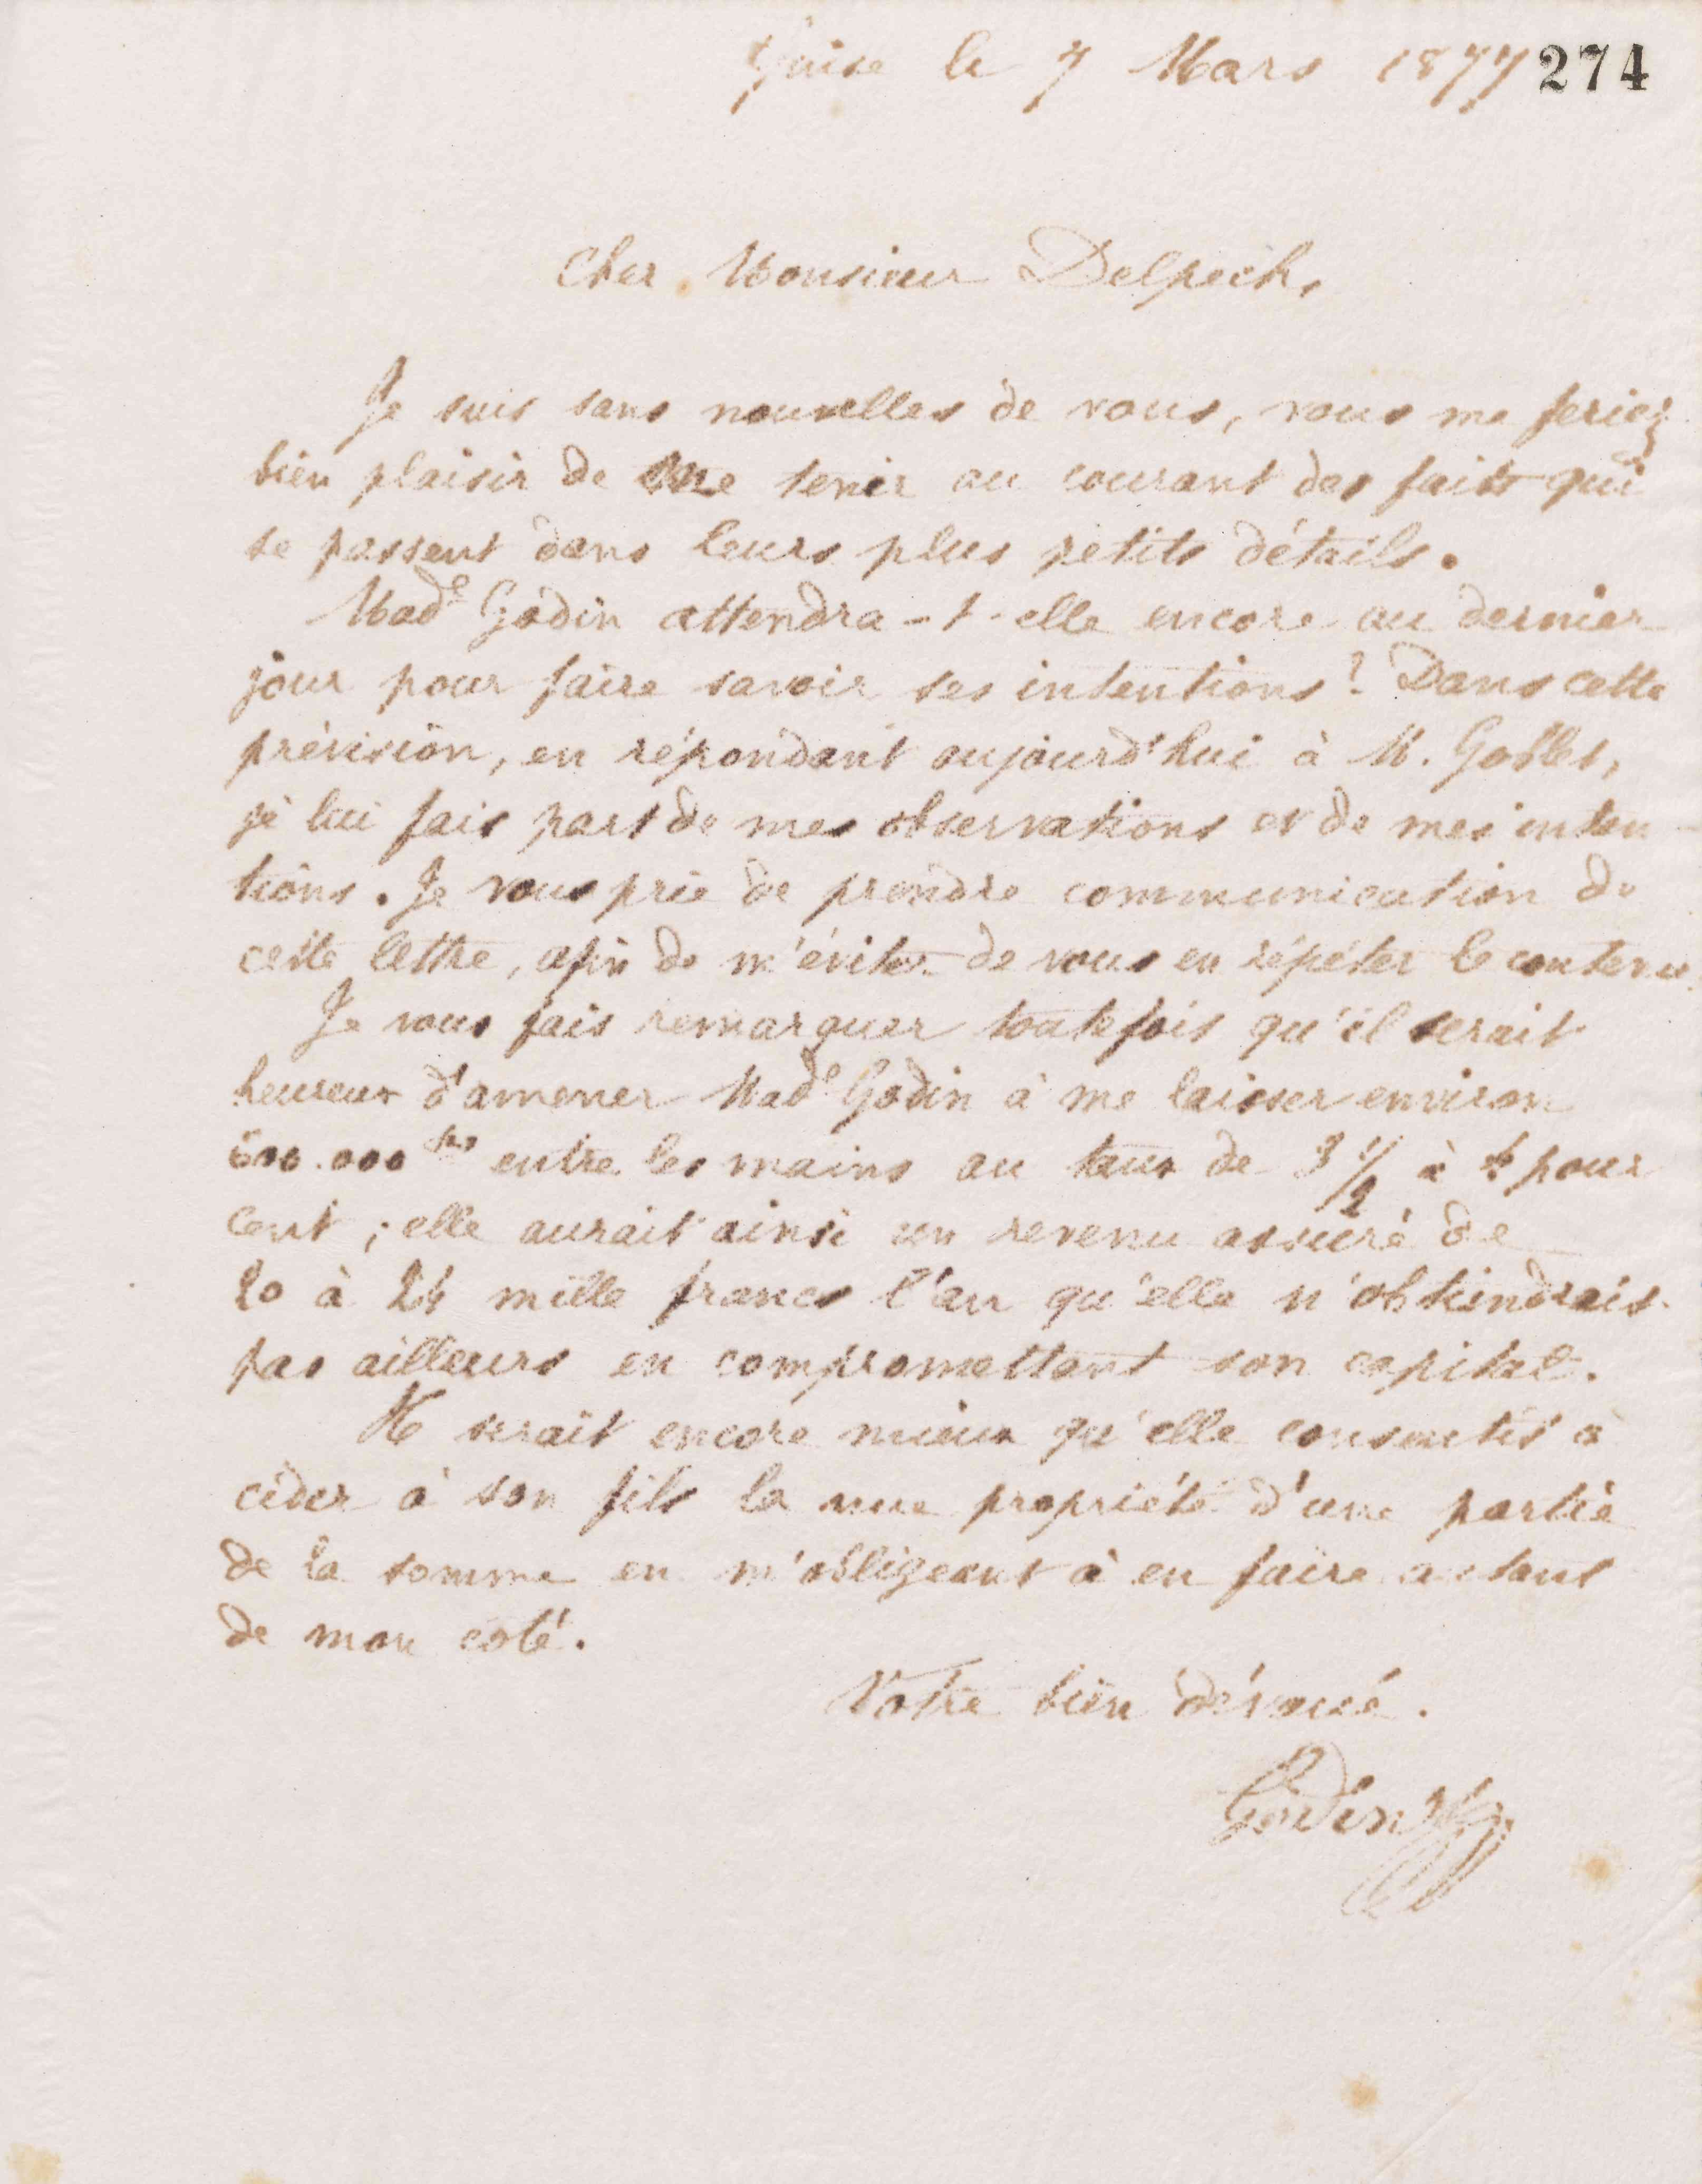 Guise le 7 Mars 1877 274
Cher Monsieur Delpech,
Je suis sans nouvelles de vous, vous me feriez
bien plaisir de me tenir au courant des faits qui
se passent dans leurs plus petits détails.
Mad<sup>e</sup> Godin attendra-t-elle encore au dernier
jour pour faire savoir ses intentions? Dans cette
prévision, en répondant aujourd'hui à M. Goblet,
je lui fais part de mes observations et de mes inten
tions. Je vous prie de prendre communication de
cette lettre, afin de m'éviter de vous en répéter le contenu.
Je vous fais remarquer toutefois qu'il serait
heureux d'amener Mad<sup>e</sup> Godin à me laisser environ
600.000 <sup>frs</sup> entre les mains au taux de 3 1/2 à 4 pour
cent ; elle aurait ainsi un revenu assuré de
20 à 24 mille francs l'an qu'elle n'obtiendrait
pas ailleurs en compromettant son capital.
Il serait encore mieux qu'elle consentit à
céder à son fils la nue propriété d'une partie
de la somme en m'obligeant à en faire autant
de mon coté.
Votre bien dévoué.
Godin